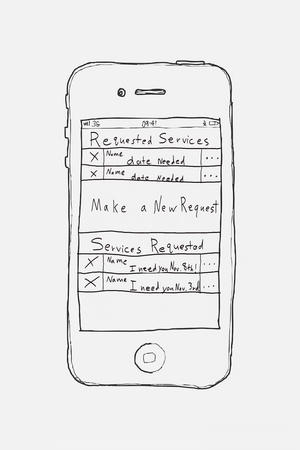 3G 09:41
Requested Services
X Name date needed ...
X Name date needed ...
Make a New Request
Services Requested
X Name I need you Nov. 8th! ...
X Name I need you Nov. 3rd ...